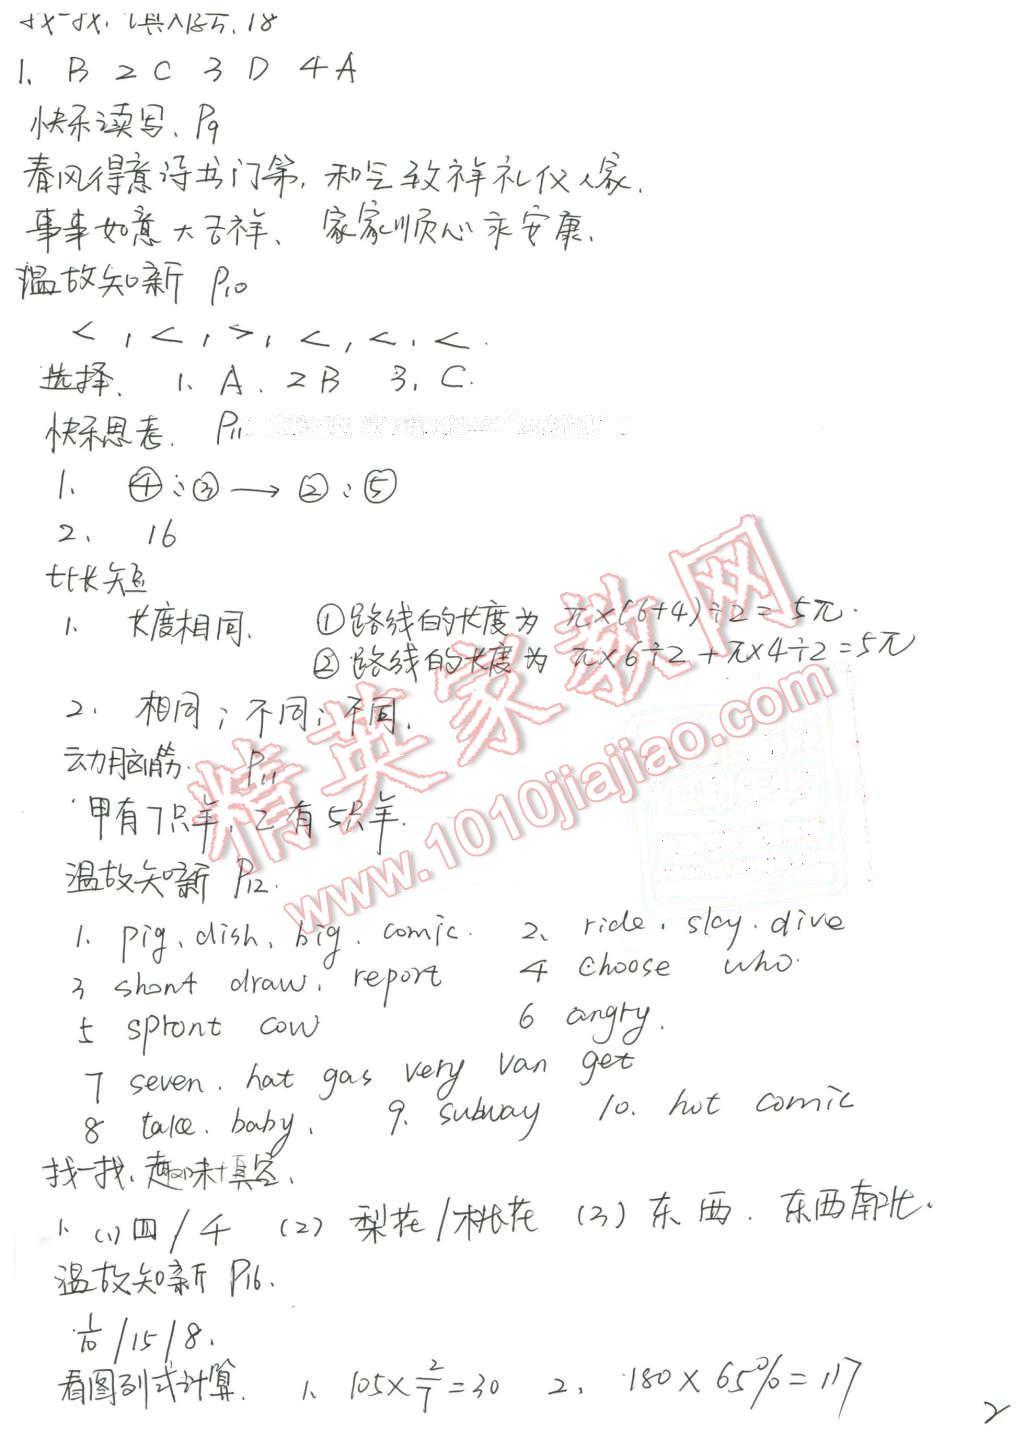 找一找,填入序号.18
1、B 2 C 3 D 4 A
快乐读写、P9
春风得意诗书门第,和气致祥礼仪人家.
事事如意大吉祥、家家顺心永安康.
温故知新 P10
<,<,>,<,<,<.
选择、1、A.2 B 3,C.
快乐思考. P11
1、④:③→②:⑤
2、16
比长短
1、长度相同. ①路线的长度为 π×(6+4)÷2=5π.
②路线的长度为 π×6÷2+π×4÷2=5π
2、相同;不同;不同.
动脑筋. P11
甲有7只羊,乙有5只羊.
温故知新 P12.
1. pig、dish、big. comic. 2、ride. slay. dive
3 shont draw. report 4 choose who.
5 spront cow 6 angry.
7 seven. hat gas very van get
8 take. baby. 9. subway 10. hot comic
找一找,趣味填空.
1、(1)四/千 (2)梨花/桃花 (3)东西. 东西南北.
温故知新 P16.
1/10 /15/8.
看图列式计算. 1、105×2/7=30 2、180×65%=117
2
精英家教网
www.1010jiajiao.com